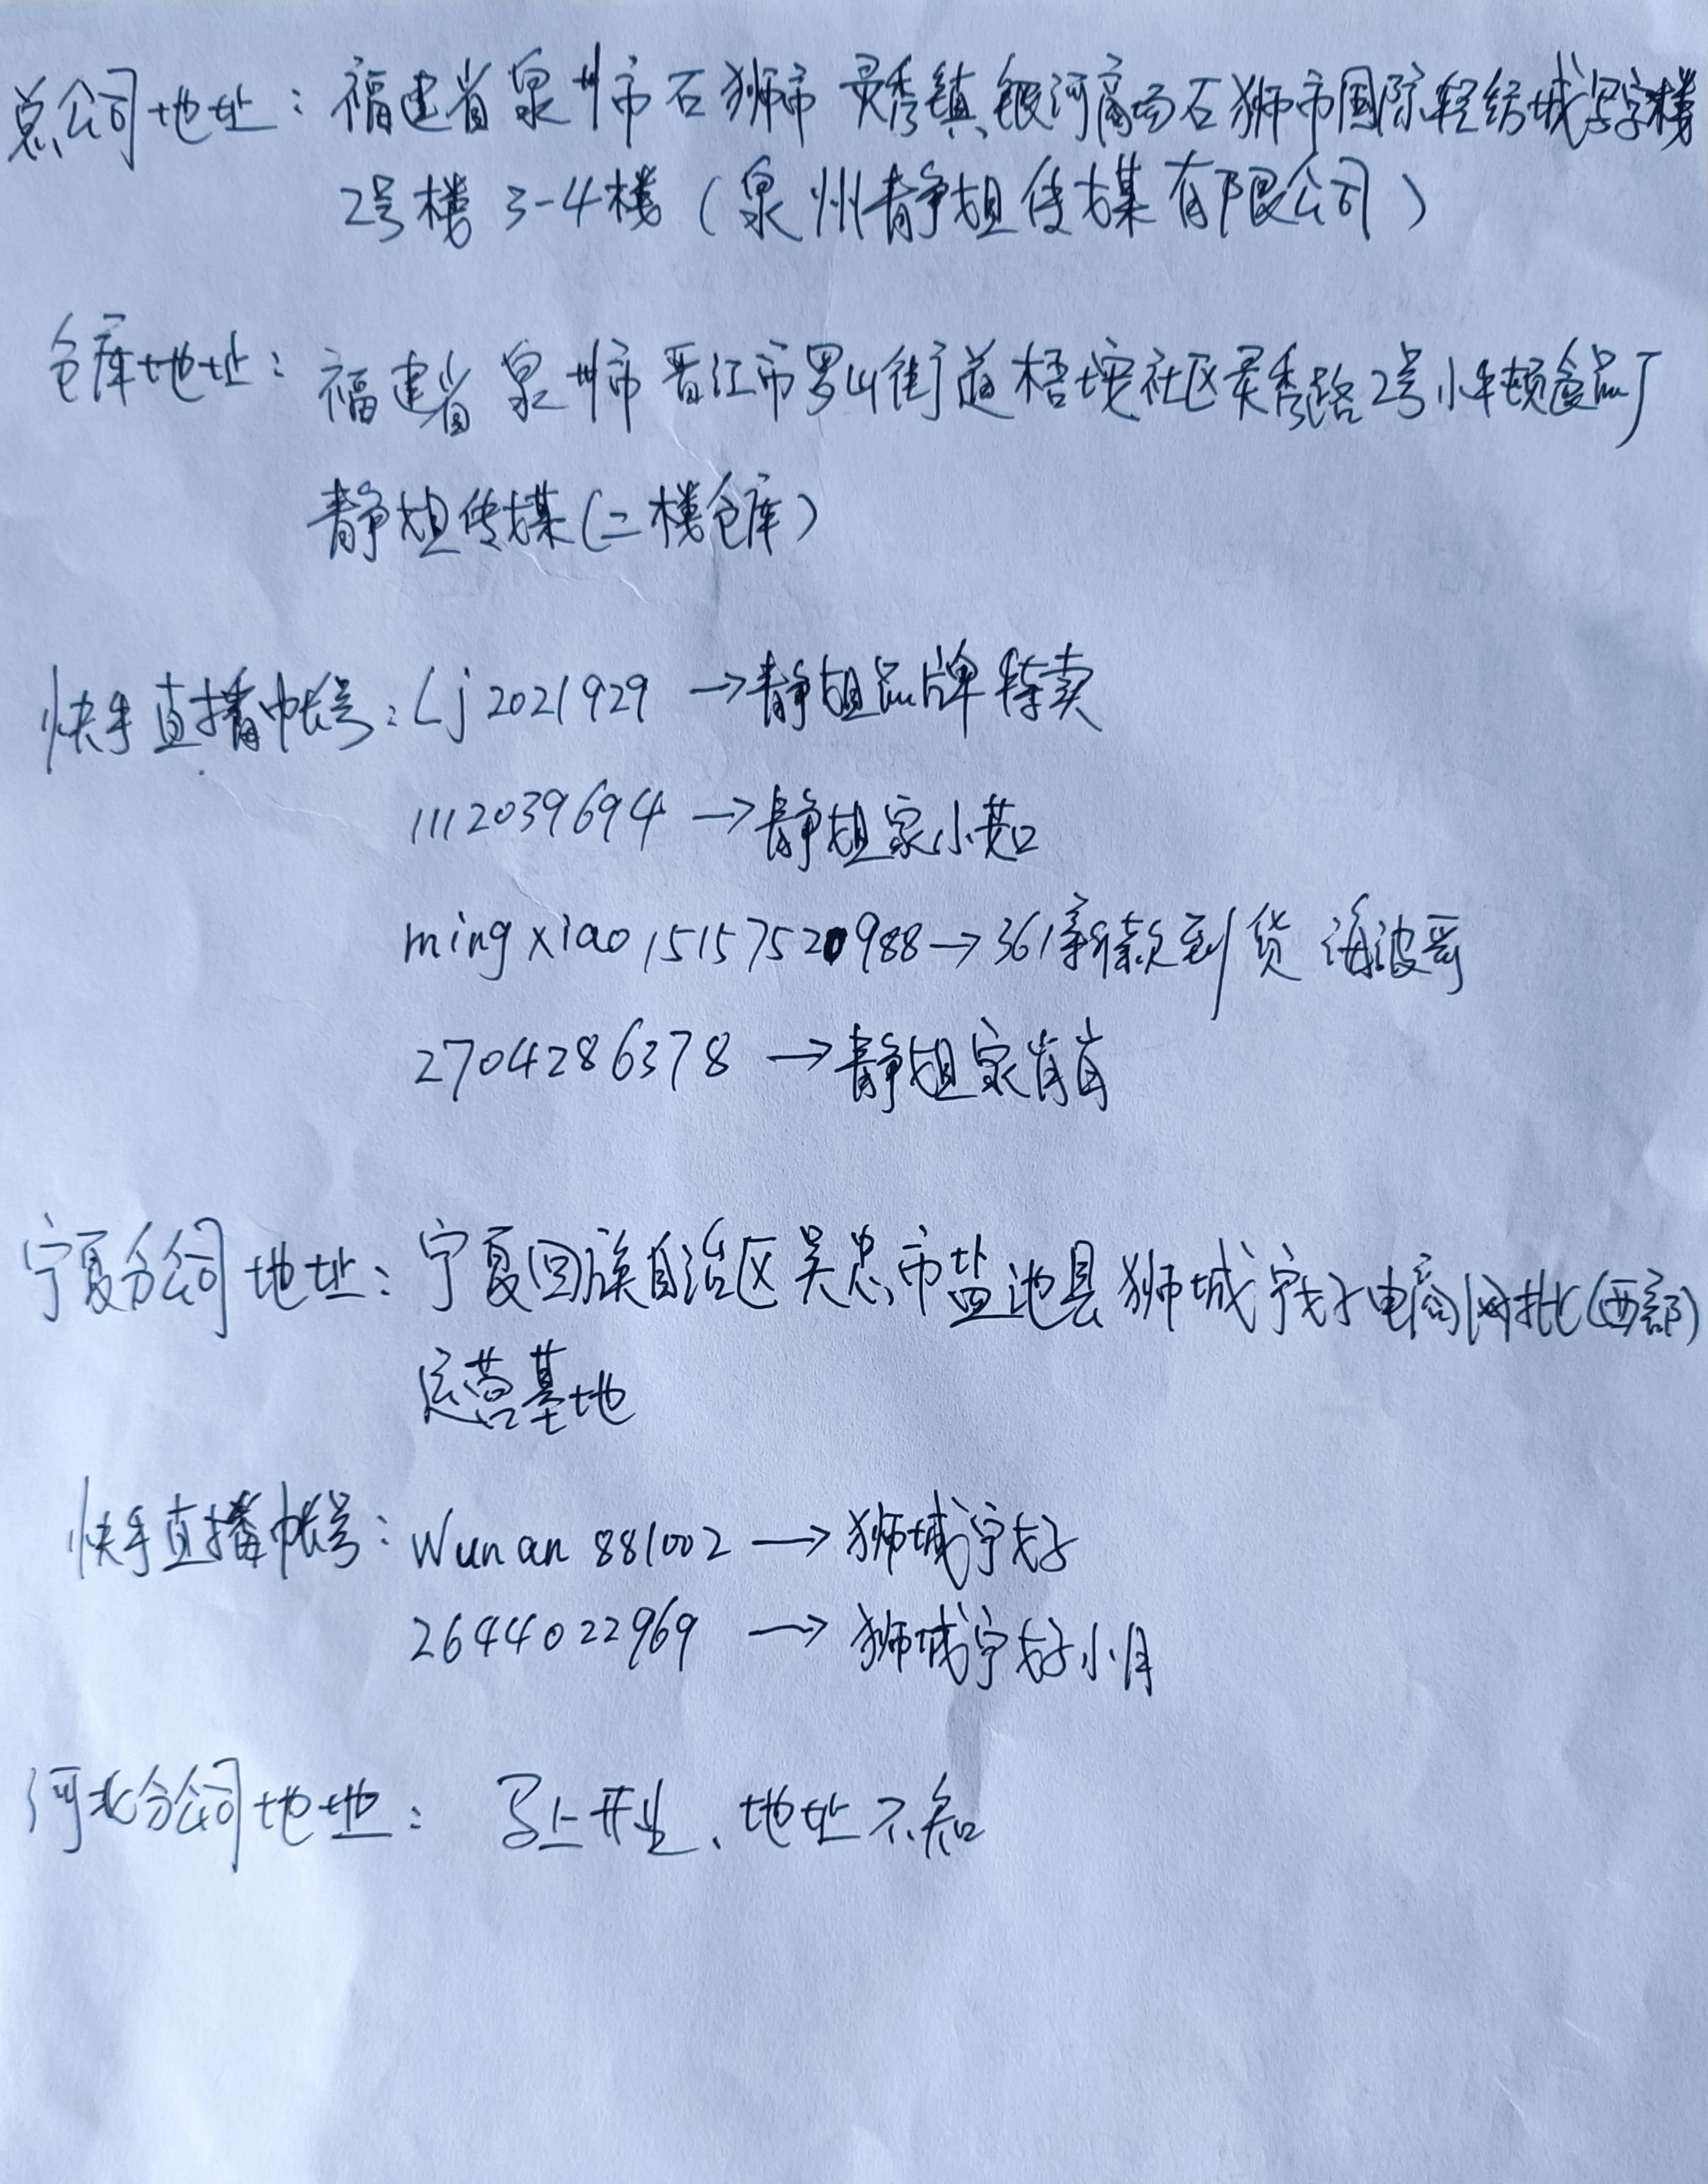 总公司地址：福建省泉州市石狮市灵秀镇银河商场石狮市国际轻纺城写字楼
2号楼3-4楼（泉州静姐传媒有限公司）
仓库地址：福建省泉州市晋江市罗山街道梧垵社区灵秀路2号小牛顿食品厂
静姐传媒(二楼仓库)
快手直播帐号：Lj2021929→静姐品牌特卖
1112039694→静姐家小茹
mingxiao15157520988→361新款到货 海波哥
2704286378→静姐家肖肖
宁夏分公司地址：宁夏回族自治区吴忠市盐池县狮城宇好电商网批(西部)
运营基地
快手直播帐号：Wunan881002→狮城宇好
2644022969→狮城宇好小月
河北分公司地址：马上开业、地址不知